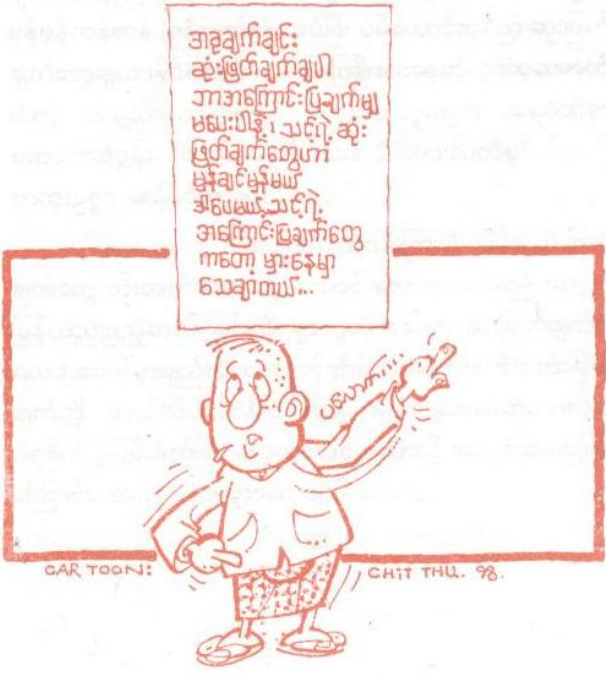 အခုချက်ချင်း
ဆုံးဖြတ်ချက်ချပါ
ဘာအကြောင်းပြချက်မျှ
မပေးပါနဲ့၊ သင့်ရဲ့ ဆုံး
ဖြတ်ချက်တွေဟာ
မှန်ချင်မှန်မယ်
ဒါပေမယ့် သင့်ရဲ့
အကြောင်းပြချက်တွေ
ကတော့ မှားနေမှာ
သေချာတယ်...
CARTOON:
CHIT THU. 98.